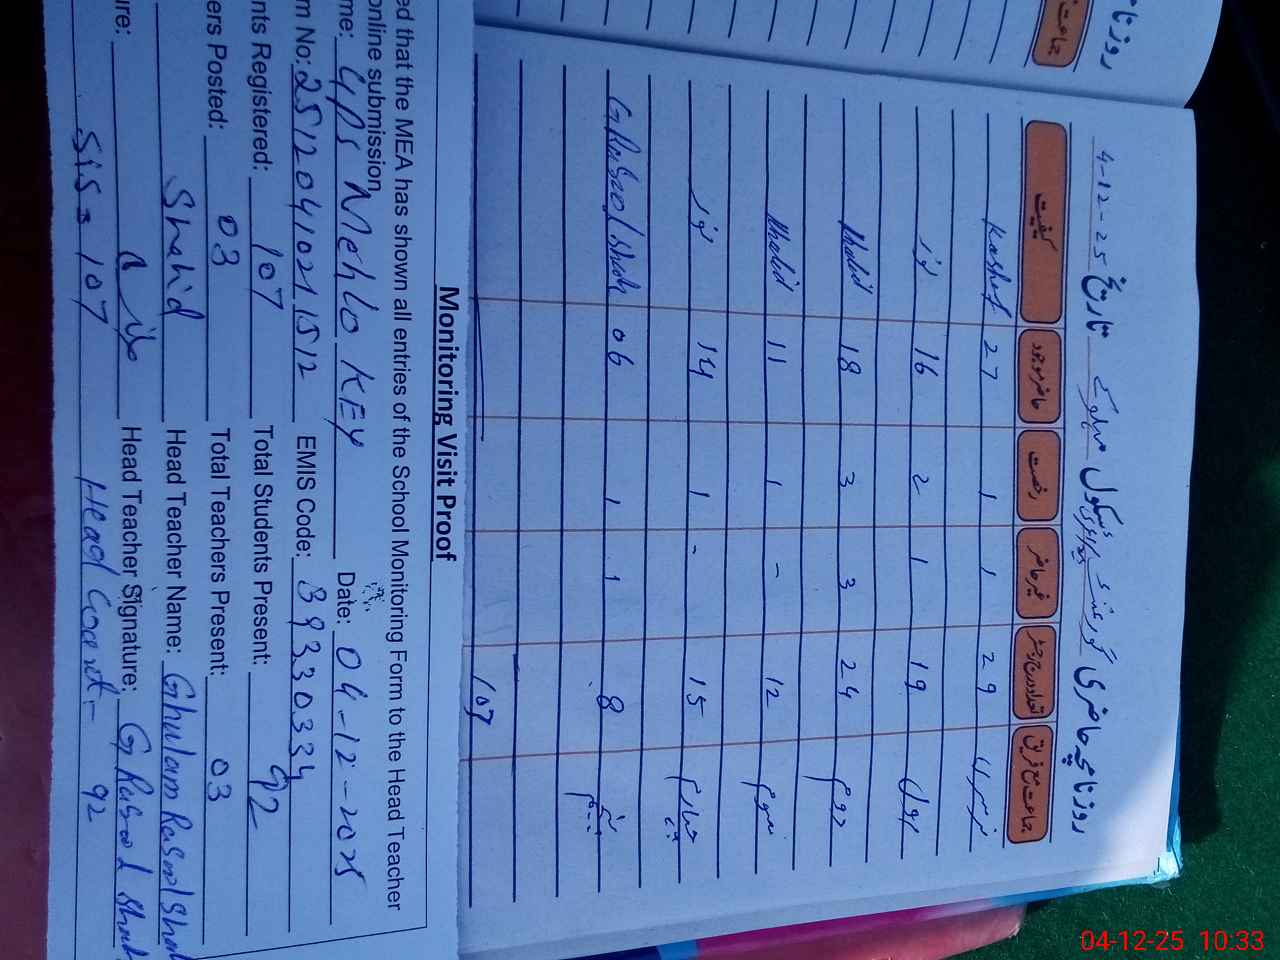 روزنامچہ حاضری گورنمنٹ پرائمری سکول میہلو کے تاریخ 4-12-25
جماعت مع فریق تعداد مندرجہ رجسٹر غیر حاضر رخصت حاضر موجود کیفیت
نرسری 29 1 1 27 Kashif
اول 19 1 2 16
دوم 24 3 3 18 Khalid
سوم 12 - 1 11 Khalid
چہارم 15 - 1 14
پنجم 8 1 1 06 G Rasool Shah
107
Monitoring Visit Proof
ed that the MEA has shown all entries of the School Monitoring Form to the Head Teacher
online submission
me: GPS Mehlo KEY Date: 04-12-2025
m No: 2512041021512 EMIS Code: 39330334
nts Registered: 107 Total Students Present: 92
ers Posted: 03 Total Teachers Present: 03
Shahid Head Teacher Name: Ghulam Rasool Shah
ure: Head Teacher Signature: G Rasool Shah
SIS = 107 Head Count - 92
روزنامچہ
جماعت
04-12-25 10:33